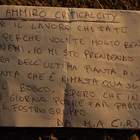 AMMIRO CRITICALCITY
E IL LAVORO CHE FATE
PERCHE' NON TE MOLTO BENE
IO MI STO PRENDENDO
DELL'ULTIMA PIANTA DI
CHE È RIMASTA QUA SUL
BOSCO. SPERO CHE UN
GIORNO POSSA FAR PARTE
VOSTRO GRUPPO
DA: M.A